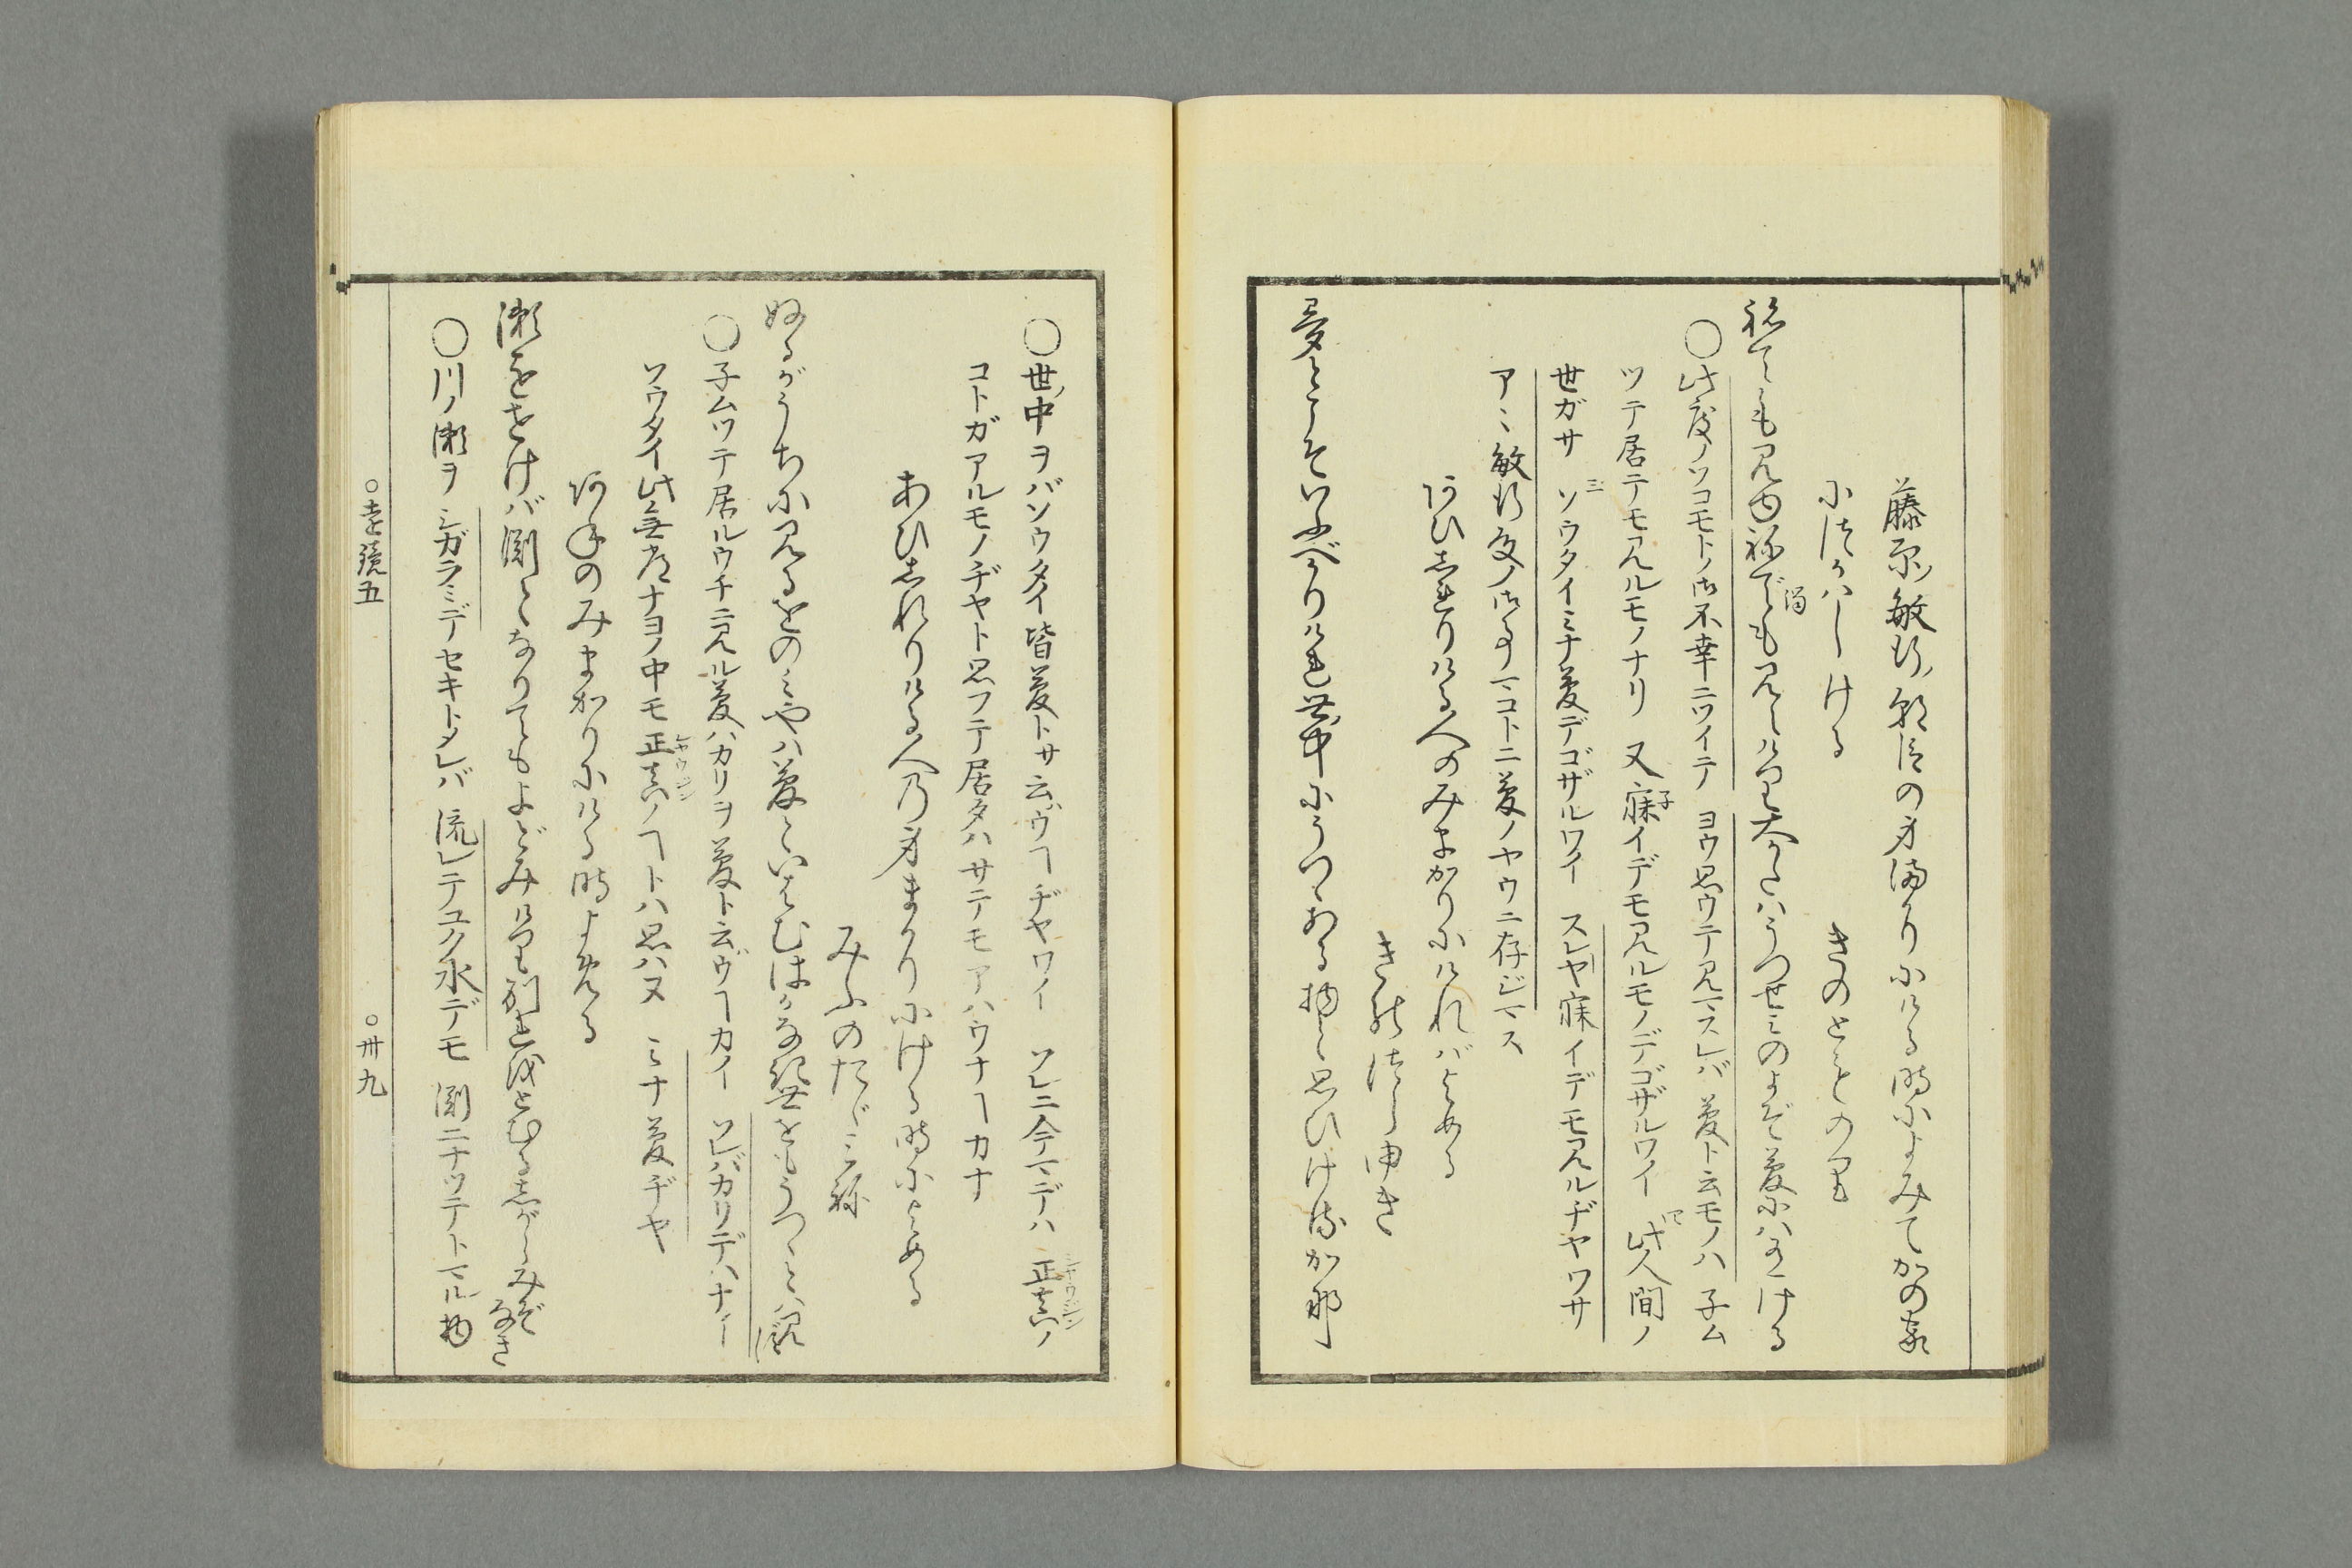 藤原ノ敏行ノ朝臣の身まかりにける時によみてかの家
につかはしける
きのとものり
ねても見ゆねでも見えけり大かたはうつせみのよぞ夢には有ける
○此度ノソコモトノ御不幸ニツイテ ヨウ思ウテ見マスレバ 夢ト云モノハ 子ム
ツテ居テモ見ルモノナリ 又寐イデモ見ルモノデゴザルワイ 此人間ノ
世ガサ ソウタイミナ夢デゴザルワイ スレヤ寐イデモ見ルヂヤワサ
アヽ敏行殿ノ御事マコトニ夢ノヤウニ存ジマス
あひしれりける人のみまかりにければよめる
きのつらゆき
夢とこそいふべかりけれ世中にうつゝある物と思ひけるかな
○世ノ中ヲバソウタイ皆夢トサ云ヿヂヤワイ ソレニ今マデハ 正真ノ
コトガアルモノヂヤト思フテ居タハ サテモアハウナヿカナ
あひしれりける人の身まかりにける時によめる
みぶのたゞみね
ぬるがうちに見るをのみやは夢といはむはかなき世をもうつゝとは見ず
○子ムツテ居ルウチニ見ル夢バカリヲ 夢ト云ハウヿカイ ソレバカリデハナイ
ソウタイ此無常ナヨノ中モ 正真ノヿトハ思ハヌ ミナ夢ヂヤ
あねのみまかりにける時よめる
瀬をせけば淵となりてもよどみけり別をとむるしがらみぞなき
○川ノ瀬ヲ シガラミデセキトメレバ 流レテユク水デモ 淵ニナツテトマル物
○遠鏡五
○卅九